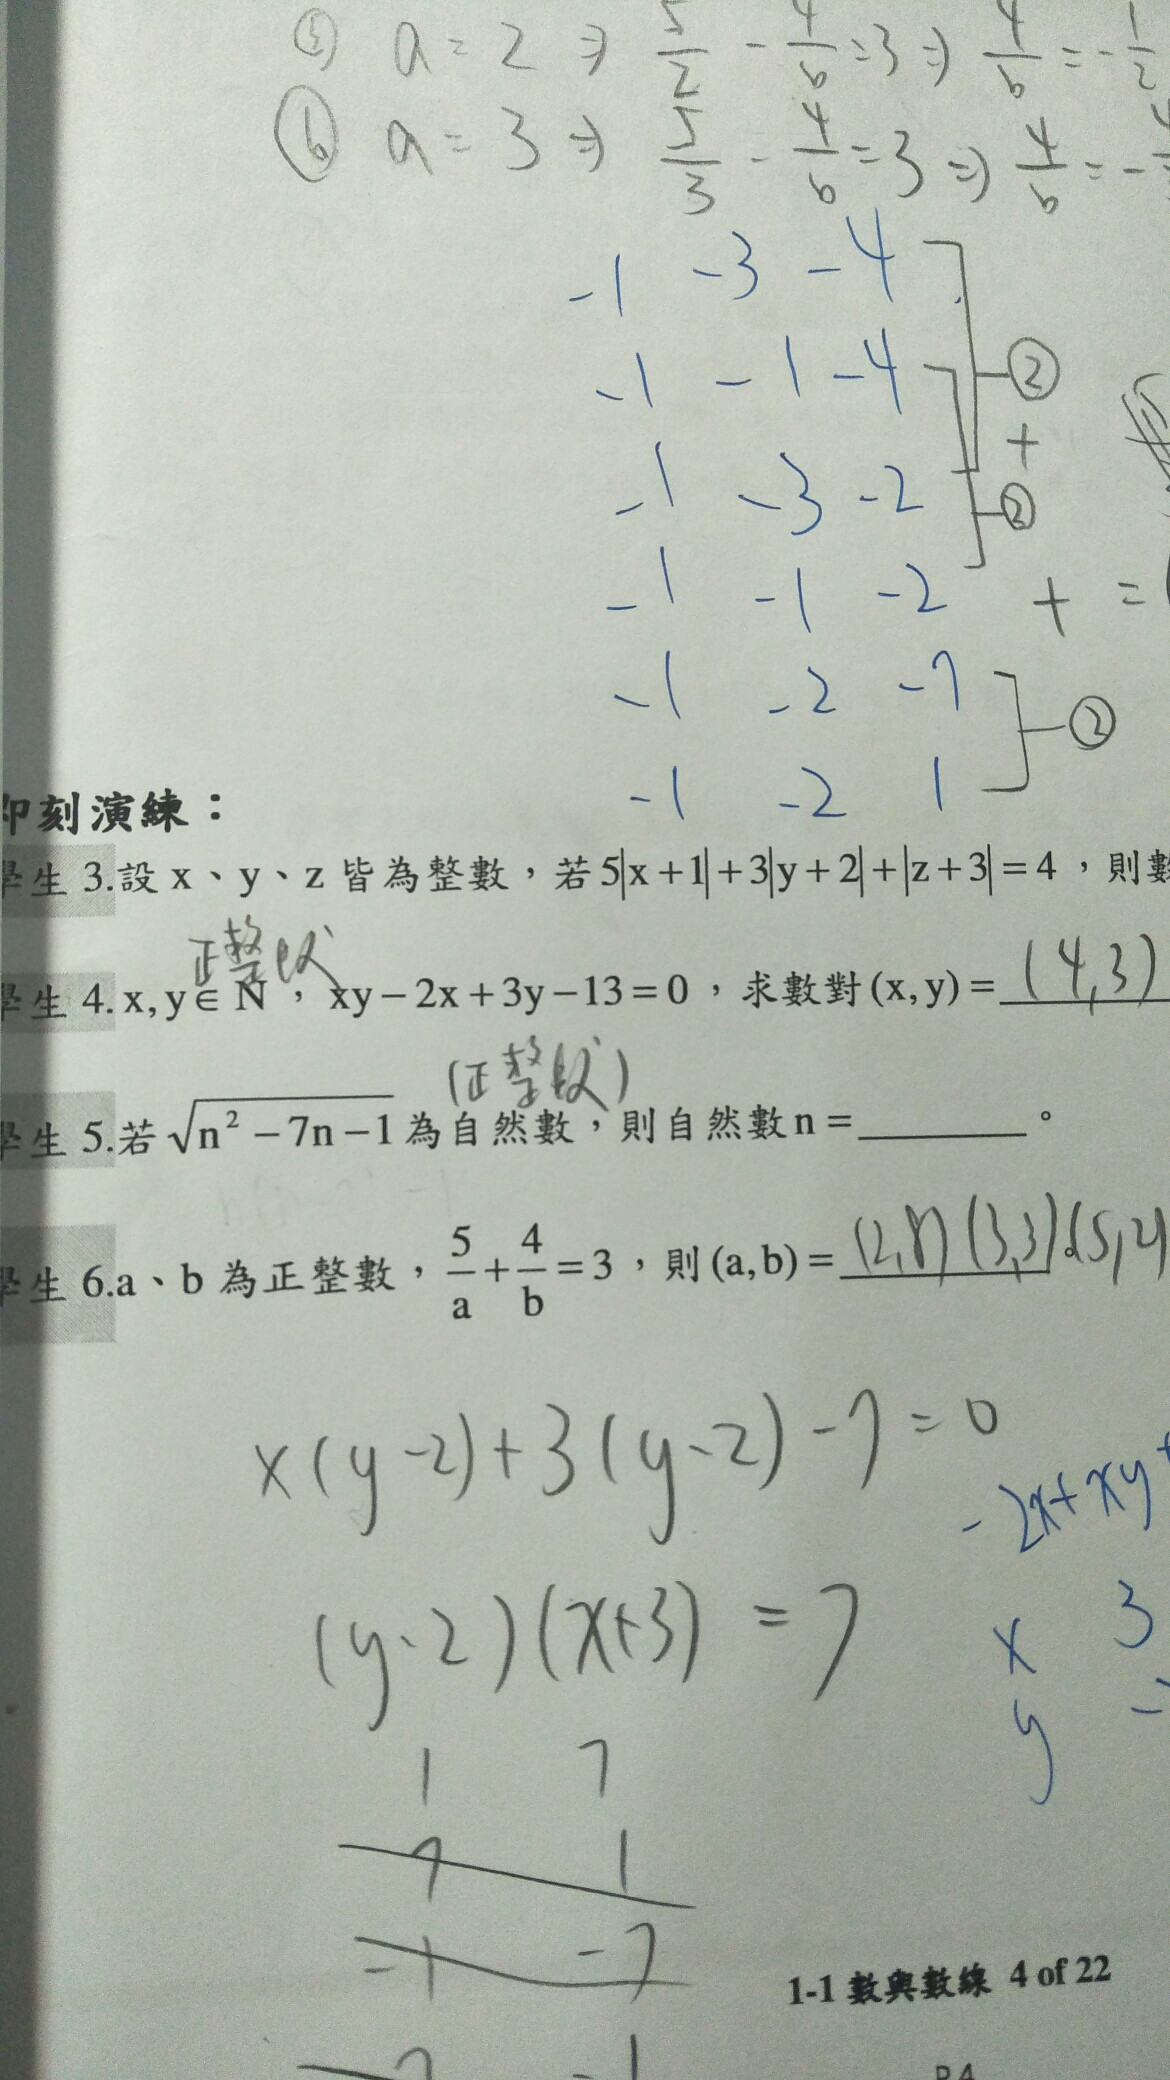 ⑤ a = 2 ⇒ 5/2 - 4/b = 3 ⇒ 4/b = - 1/2
⑥ a = 3 ⇒ 5/3 - 4/b = 3 ⇒ 4/b = -
-1 -3 -4
-1 -1 -4
②
+
-1 -3 -2
②
-1 -1 -2 + =
-1 -2 -7
②
-1 -2 1
即刻演練：
學生 3.設 x、y、z 皆為整數，若 5|x+1|+3|y+2|+|z+3|=4，則數
正整數
學生 4. x, y∈N，xy−2x+3y−13=0，求數對(x,y)= (4,3)
(正整數)
學生 5.若 √(n²−7n−1) 為自然數，則自然數 n = ______。
學生 6.a、b 為正整數，5/a + 4/b = 3，則 (a,b) = (2,8) (3,3)。(5,2)
x(y-2)+3(y-2)-7=0
-2x+xy
(y-2)(x+3) = 7
x 3
y
1 7
7 1
-1 -7
1-1 數與數線 4 of 22
-1
P.4